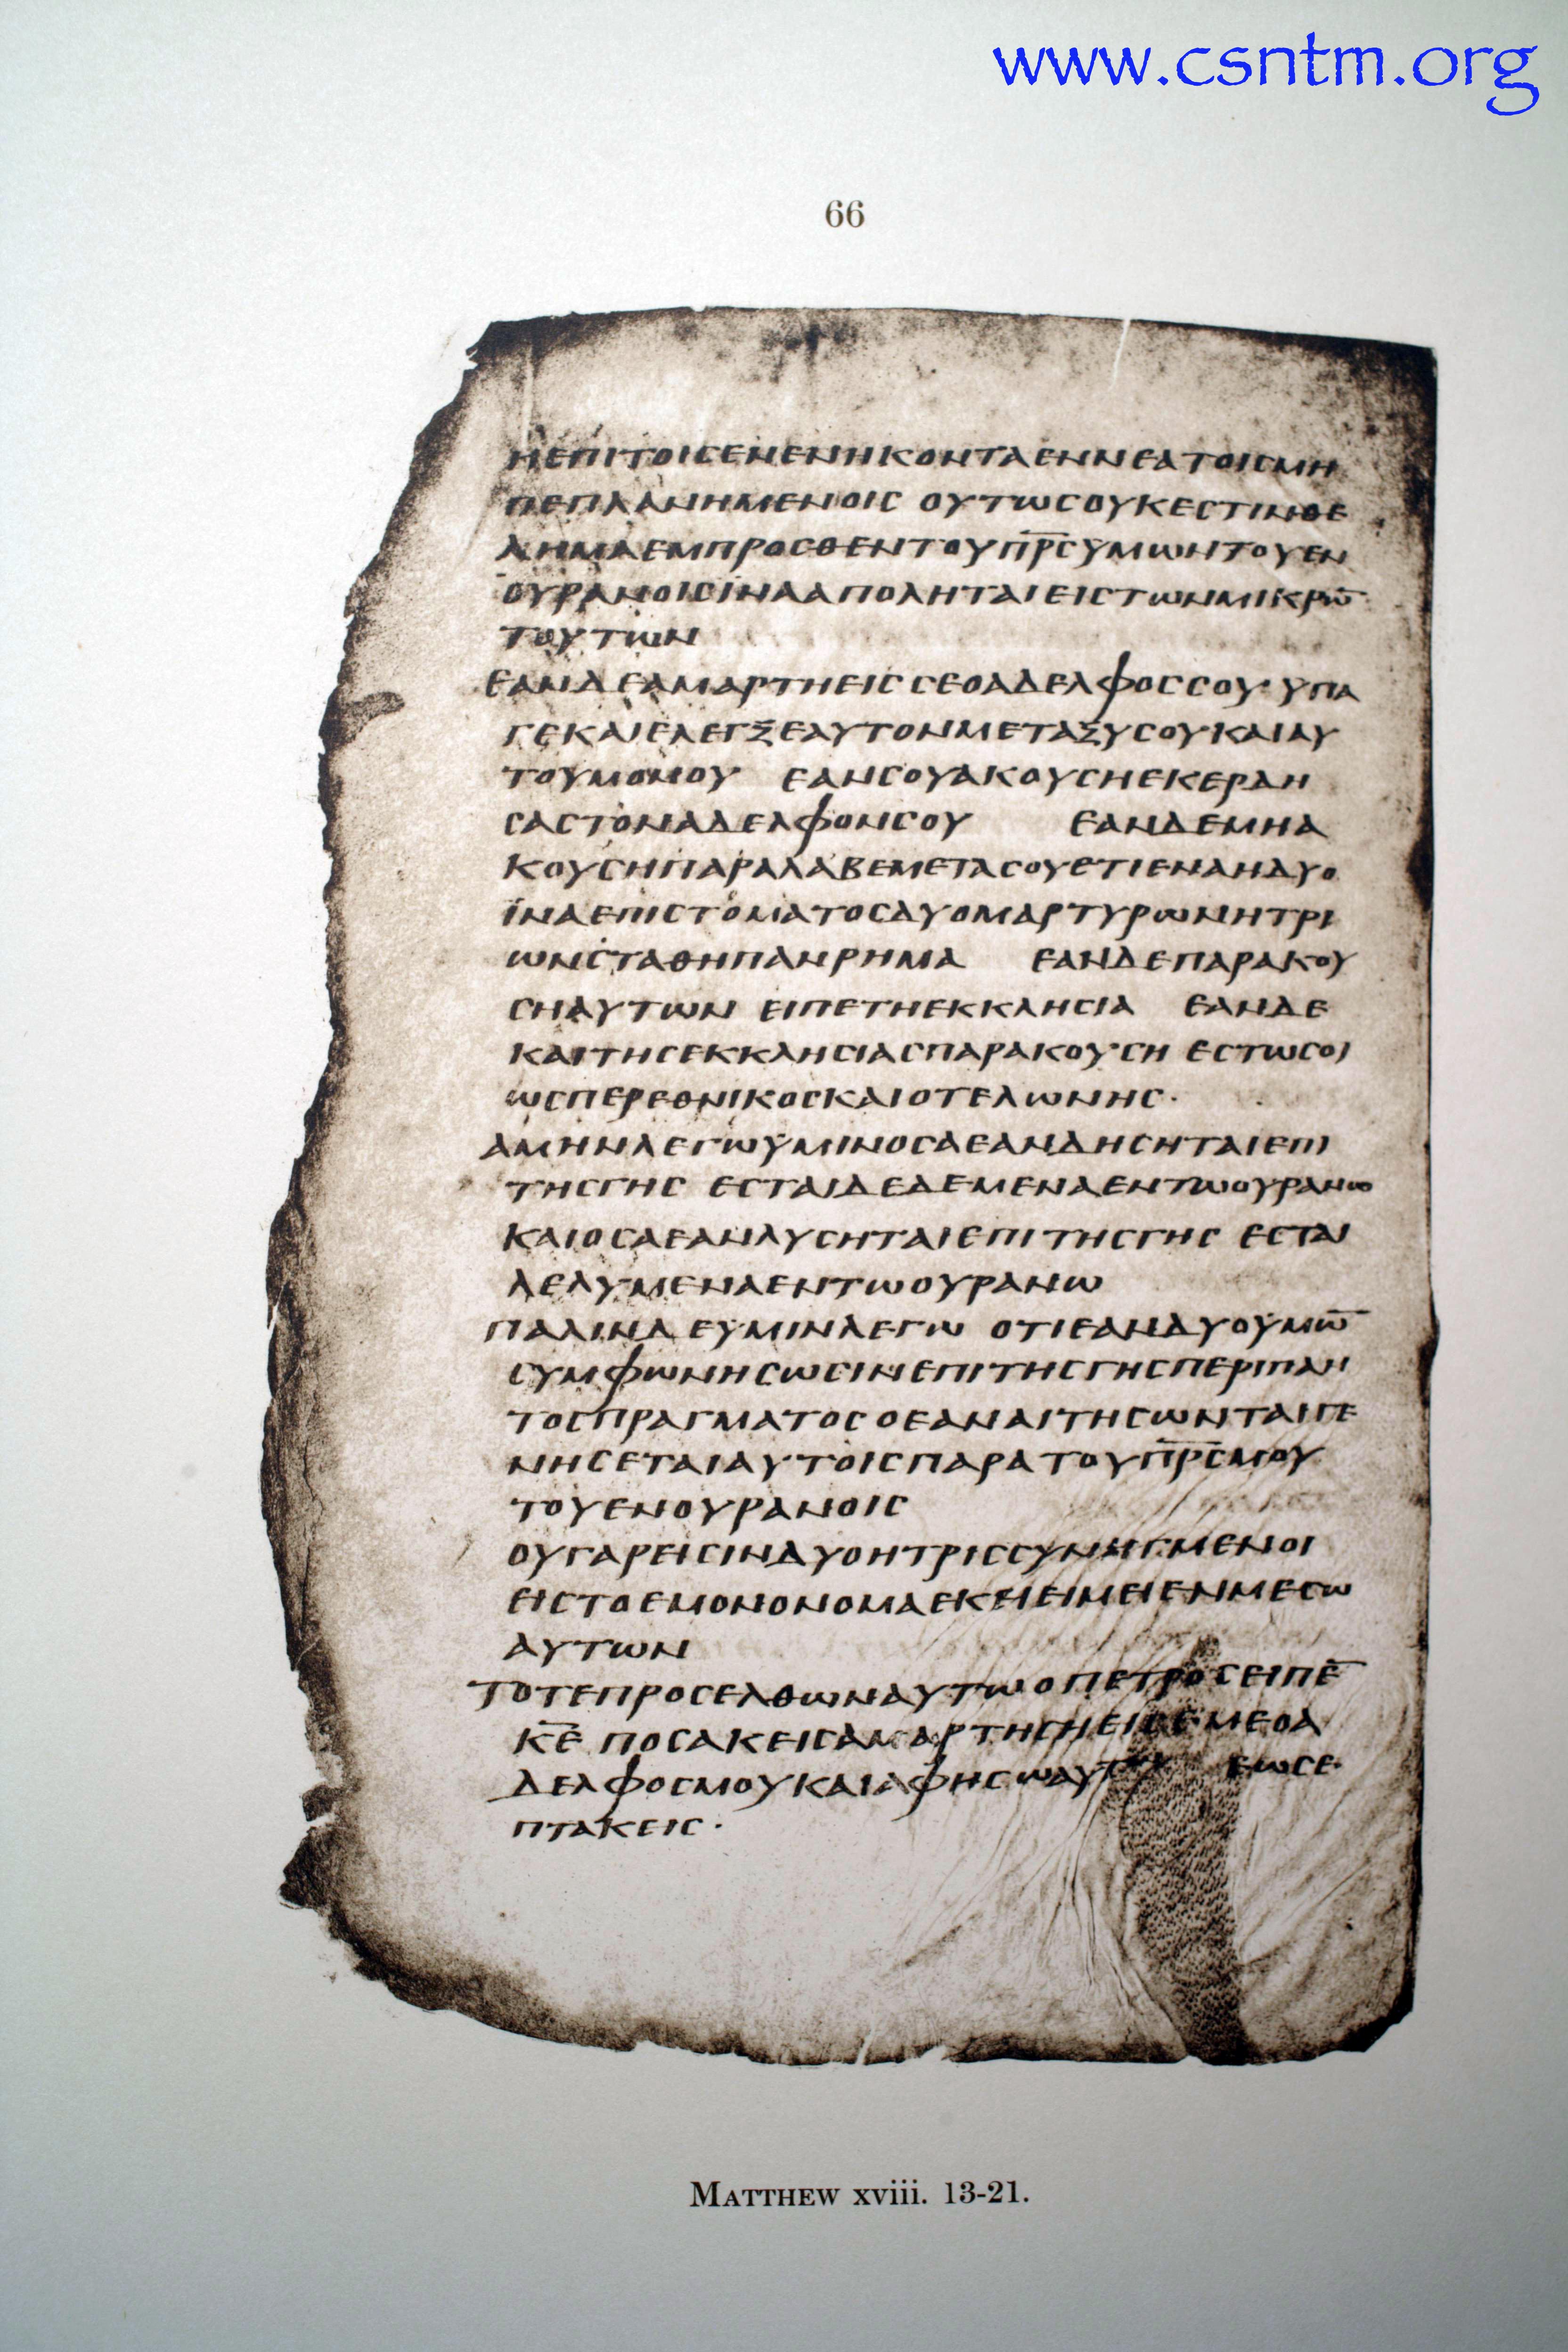 www.csntm.org
66
ΗΕΠΙΤΟΙCΕΝΕΝΗΚΟΝΤΑΕΝΝΕΑΤΟΙCΜΗ
ΠΕΠΛΑΝΗΜΕΝΟΙC ΟΥΤΩCΟΥΚΕCΤΙΝΘΕ
ΛΗΜΑΕΜΠΡΟCΘΕΝΤΟΥΠ̅Ρ̅C̅ΫΜΩΝΤΟΥΕΝ
ΟΥΡΑΝΟΙCΪΝΑΑΠΟΛΗΤΑΙΕΙCΤΩΝΜΙΚΡΩ̅
ΤΟΥΤΩΝ
ΕΑΝΔΕΑΜΑΡΤΗΕΙCCΕΟΑΔΕΛΦΟCCΟΥ ΥΠΑ
ΓΕΚΑΙΕΛΕΓΞΕΑΥΤΟΝΜΕΤΑΞΥCΟΥΚΑΙΑΥ
ΤΟΥΜΟΝΟΥ ΕΑΝCΟΥΑΚΟΥCΗΕΚΕΡΔΗ
CΑCΤΟΝΑΔΕΛΦΟΝCΟΥ ΕΑΝΔΕΜΗΑ
ΚΟΥCΗΠΑΡΑΛΑΒΕΜΕΤΑCΟΥΕΤΙΕΝΑΗΔΥΟ
ΪΝΑΕΠΙCΤΟΜΑΤΟCΔΥΟΜΑΡΤΥΡΩΝΗΤΡΙ
ΩΝCΤΑΘΗΠΑΝΡΗΜΑ ΕΑΝΔΕΠΑΡΑΚΟΥ
CΗΑΥΤΩΝ ΕΙΠΕΤΗΕΚΚΛΗCΙΑ ΕΑΝΔΕ
ΚΑΙΤΗCΕΚΚΛΗCΙΑCΠΑΡΑΚΟΥCΗ ΕCΤΩCΟΙ
ΩCΠΕΡΕΘΝΙΚΟCΚΑΙΟΤΕΛΩΝΗC·
ΑΜΗΝΛΕΓΩΫΜΙΝΟCΑΕΑΝΔΗCΗΤΑΙΕΠΙ
ΤΗCΓΗC ΕCΤΑΙΔΕΔΕΜΕΝΑΕΝΤΩΟΥΡΑΝΩ
ΚΑΙΟCΑΕΑΝΛΥCΗΤΑΙΕΠΙΤΗCΓΗC ΕCΤΑΙ
ΛΕΛΥΜΕΝΑΕΝΤΩΟΥΡΑΝΩ
ΠΑΛΙΝΔΕΥΜΙΝΛΕΓΩ ΟΤΙΕΑΝΔΥΟΫΜΩ̅
CΥΜΦΩΝΗCΩCΙΝΕΠΙΤΗCΓΗCΠΕΡΙΠΑΝ
ΤΟCΠΡΑΓΜΑΤΟC ΟΕΑΝΑΙΤΗCΩΝΤΑΙΓΕ
ΝΗCΕΤΑΙΑΥΤΟΙCΠΑΡΑΤΟΥΠ̅Ρ̅C̅ΜΟΥ
ΤΟΥΕΝΟΥΡΑΝΟΙC
ΟΥΓΑΡΕΙCΙΝΔΥΟΗΤΡΙCCΥΝΗΓΜΕΝΟΙ
ΕΙCΤΟΕΜΟΝΟΝΟΜΑΕΚΕΙΕΙΜΕΙΕΝΜΕCΩ
ΑΥΤΩΝ
ΤΟΤΕΠΡΟCΕΛΘΩΝΑΥΤΩΟΠΕΤΡΟCΕΙΠΕ̅
Κ̅Ε̅ ΠΟCΑΚΕΙCΑΜΑΡΤΗCΗΕΙCΕΜΕΟΑ
ΔΕΛΦΟCΜΟΥΚΑΙΑΦΗCΩΑΥΤΩ ΕΩCΕ
ΠΤΑΚΕΙC·
MATTHEW xviii. 13-21.